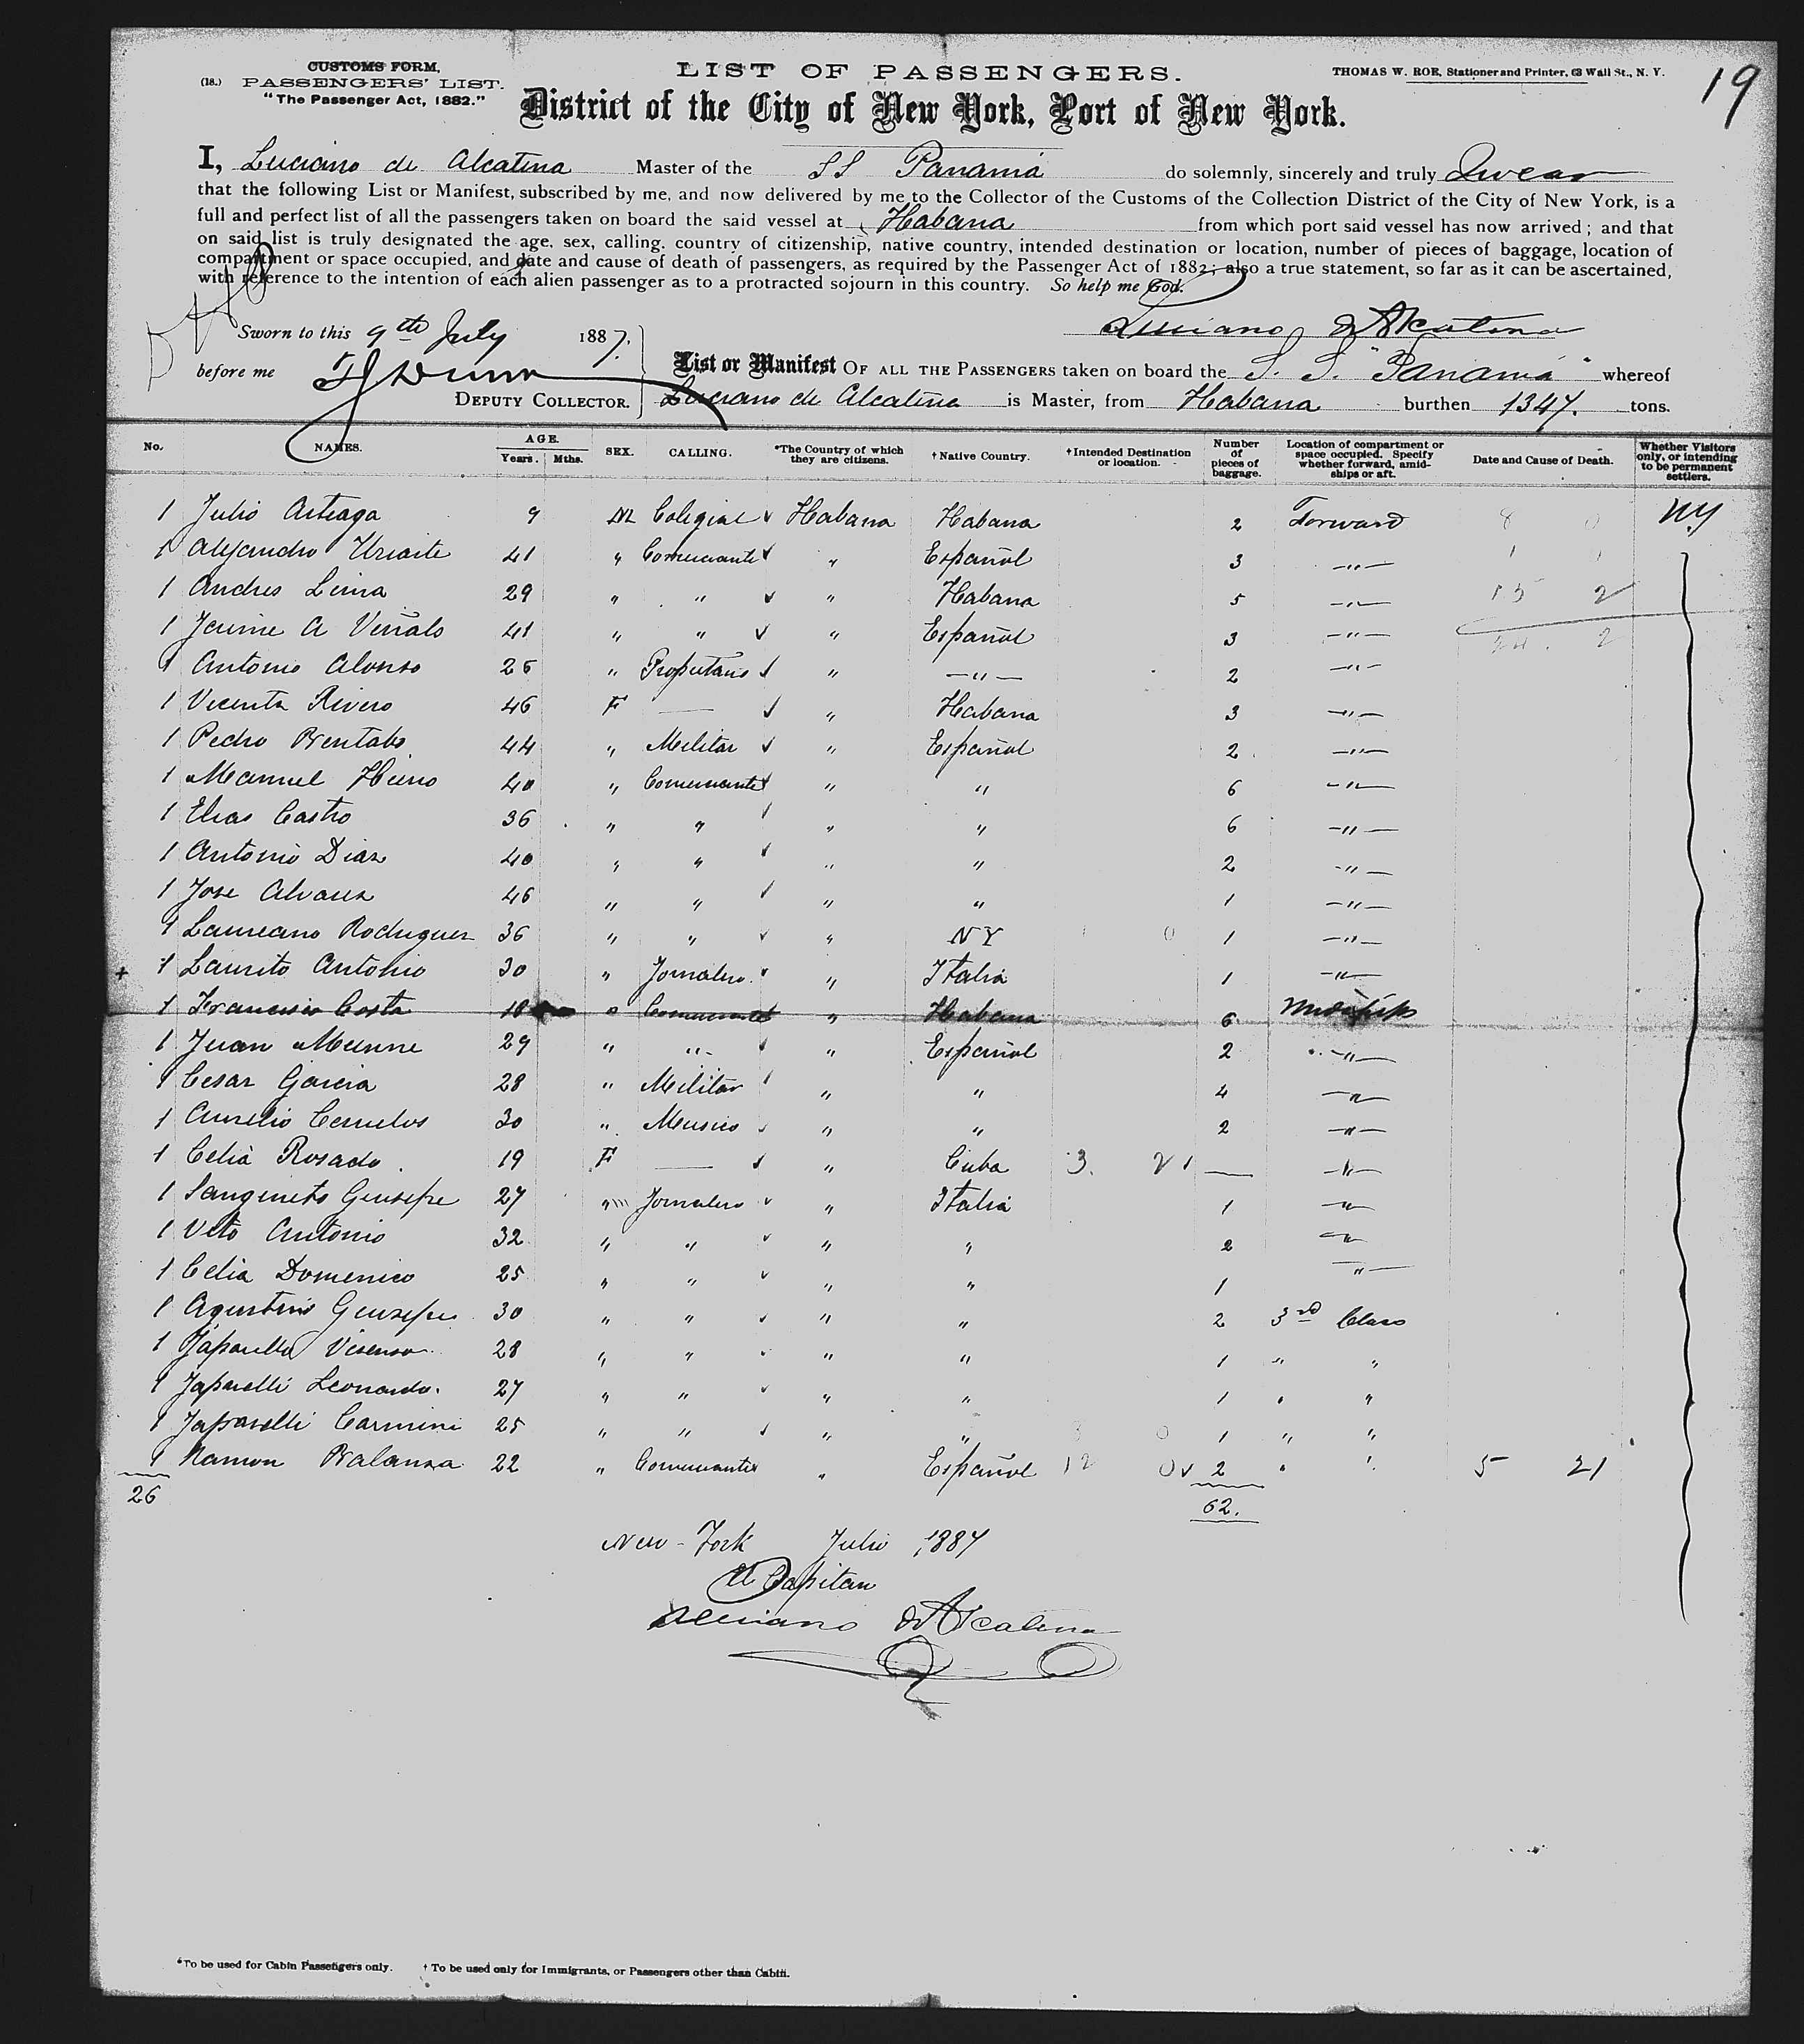 CUSTOMS FORM,
(18.) PASSENGERS' LIST.
"The Passenger Act, 1882."
LIST OF PASSENGERS.
THOMAS W. ROE, Stationer and Printer, 63 Wall St., N. Y.
19
District of the City of New York, Port of New York.
I, Luciano de Alcatena Master of the SS Panamá do solemnly, sincerely and truly Swear
that the following List or Manifest, subscribed by me, and now delivered by me to the Collector of the Customs of the Collection District of the City of New York, is a
full and perfect list of all the passengers taken on board the said vessel at Habana from which port said vessel has now arrived; and that
on said list is truly designated the age, sex, calling, country of citizenship, native country, intended destination or location, number of pieces of baggage, location of
compartment or space occupied, and date and cause of death of passengers, as required by the Passenger Act of 1882; also a true statement, so far as it can be ascertained,
with reference to the intention of each alien passenger as to a protracted sojourn in this country. So help me God.
Luciano d Alcatena
Sworn to this 9th July 1887.
before me
DEPUTY COLLECTOR.
List or Manifest OF ALL THE PASSENGERS taken on board the S. S. "Panamá" whereof
Luciano de Alcatena is Master, from Habana burthen 1347. tons.
No. NAMES. AGE. Years. Mths. SEX. CALLING. *The Country of which they are citizens. †Native Country. †Intended Destination or location. Number of pieces of baggage. Location of compartment or space occupied. Specify whether forward, amidships or aft. Date and Cause of Death. Whether Visitors only, or intending to be permanent settlers.
1 Julio Arteaga 9 M Colegial Habana Habana 2 Forward NY
1 Alejandro Uriarte 41 " Comerciante " Español 3 -"-
1 Andres Lima 29 " " " Habana 5 -"-
1 Jaime A Viñals 41 " " " Español 3 -"-
1 Antonio Alonso 26 " Propietario " -"- 2 -"-
1 Vicenta Rivero 46 F — " Habana 3 -"-
1 Pedro 44 " Militar " Español 2 -"-
1 Manuel 40 " Comerciante " " 6 -"-
1 Elias Castro 36 " " " " 6 -"-
1 Antonio Diaz 40 " " " " 2 -"-
1 Jose Alvarez 46 " " " " 1 -"-
1 Laureano Rodriguez 36 " " " NY 1 -"-
+ 1 Laurito Antonio 30 " Jornalero " Italia 1 -"-
1 Francisco Costa 18 " Comerciante " Habana 6 Midships
1 Juan Munne 29 " " " Español 2 -"-
1 Cesar Garcia 28 " Militar " " 4 -"-
1 Aurelio 30 " Musico " " 2 -"-
1 Celia Rosado 19 F — " Cuba — -"-
1 Sanguineto Giusepe 27 " Jornalero " Italia 1 -"-
1 Vito Antonio 32 " " " " 2 -"-
1 Celia Domenico 25 " " " " 1 "-
1 Agustino Giusepe 30 " " " " 2 3rd Class
1 Japarelli Vicenso 28 " " " " 1 " "
1 Japarelli Leonardo. 27 " " " " 1 " "
1 Japarelli Carmini 25 " " " " 1 " "
1 Ramon Balanza 22 " Comerciante " Español 2 " " 5 21
26 62.
New-York Julio 1887
El Capitan
Luciano d Alcatena
*To be used for Cabin Passengers only. †To be used only for Immigrants, or Passengers other than Cabin.